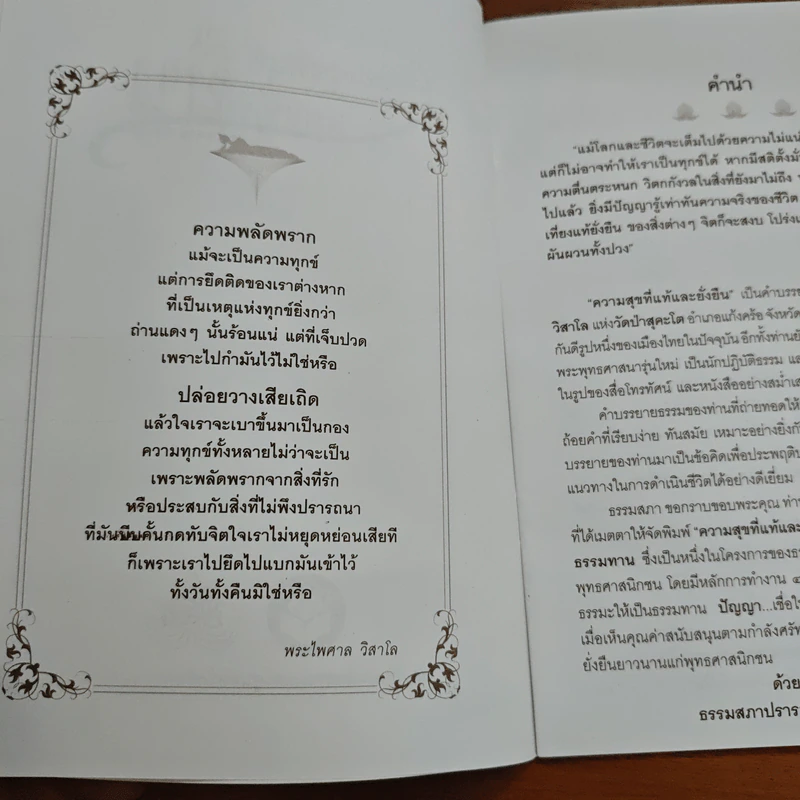 ความพลัดพราก
แม้จะเป็นความทุกข์
แต่การยึดติดของเราต่างหาก
ที่เป็นเหตุแห่งทุกข์ยิ่งกว่า
ถ่านแดงๆ นั้นร้อนแน่ แต่ที่เจ็บปวด
เพราะไปกำมันไว้ไม่ใช่หรือ
ปล่อยวางเสียเถิด
แล้วใจเราจะเบาขึ้นมาเป็นกอง
ความทุกข์ทั้งหลายไม่ว่าจะเป็น
เพราะพลัดพรากจากสิ่งที่รัก
หรือประสบกับสิ่งที่ไม่พึงปรารถนา
ที่มันบีบคั้นกดทับจิตใจเราไม่หยุดหย่อนเสียที
ก็เพราะเราไปยึดไปแบกมันเข้าไว้
ทั้งวันทั้งคืนมิใช่หรือ
พระไพศาล วิสาโล
คำนำ
"แม้โลกและชีวิตจะเต็มไปด้วยความไม่แน่
แต่ก็ไม่อาจทำให้เราเป็นทุกข์ได้ หากมีสติตั้งมั่
ความตื่นตระหนก วิตกกังวลในสิ่งที่ยังมาไม่ถึง
ไปแล้ว ยิ่งมีปัญญารู้เท่าทันความจริงของชีวิต
เที่ยงแท้ยั่งยืน ของสิ่งต่างๆ จิตก็จะสงบ โปร่งเ
ผันผวนทั้งปวง"
"ความสุขที่แท้และยั่งยืน" เป็นคำบรรย
วิสาโล แห่งวัดป่าสุคะโต อำเภอแก้งคร้อ จังหวัด
กันดีรูปหนึ่งของเมืองไทยในปัจจุบัน อีกทั้งท่านยั
พระพุทธศาสนารุ่นใหม่ เป็นนักปฏิบัติธรรม แล
ในรูปของสื่อโทรทัศน์ และหนังสืออย่างสม่ำเส
คำบรรยายธรรมของท่านที่ถ่ายทอดให้
ถ้อยคำที่เรียบง่าย ทันสมัย เหมาะอย่างยิ่งกั
บรรยายของท่านมาเป็นข้อคิดเพื่อประพฤติป
แนวทางในการดำเนินชีวิตได้อย่างดีเยี่ยม
ธรรมสภา ขอกราบขอบพระคุณ ท่า
ที่ได้เมตตาให้จัดพิมพ์ "ความสุขที่แท้และ
ธรรมทาน ซึ่งเป็นหนึ่งในโครงการของธร
พุทธศาสนิกชน โดยมีหลักการทำงาน ๔
ธรรมะให้เป็นธรรมทาน ปัญญา...เชื่อใ
เมื่อเห็นคุณค่าสนับสนุนตามกำลังศรัท
ยั่งยืนยาวนานแก่พุทธศาสนิกชน
ด้วย
ธรรมสภาปราร